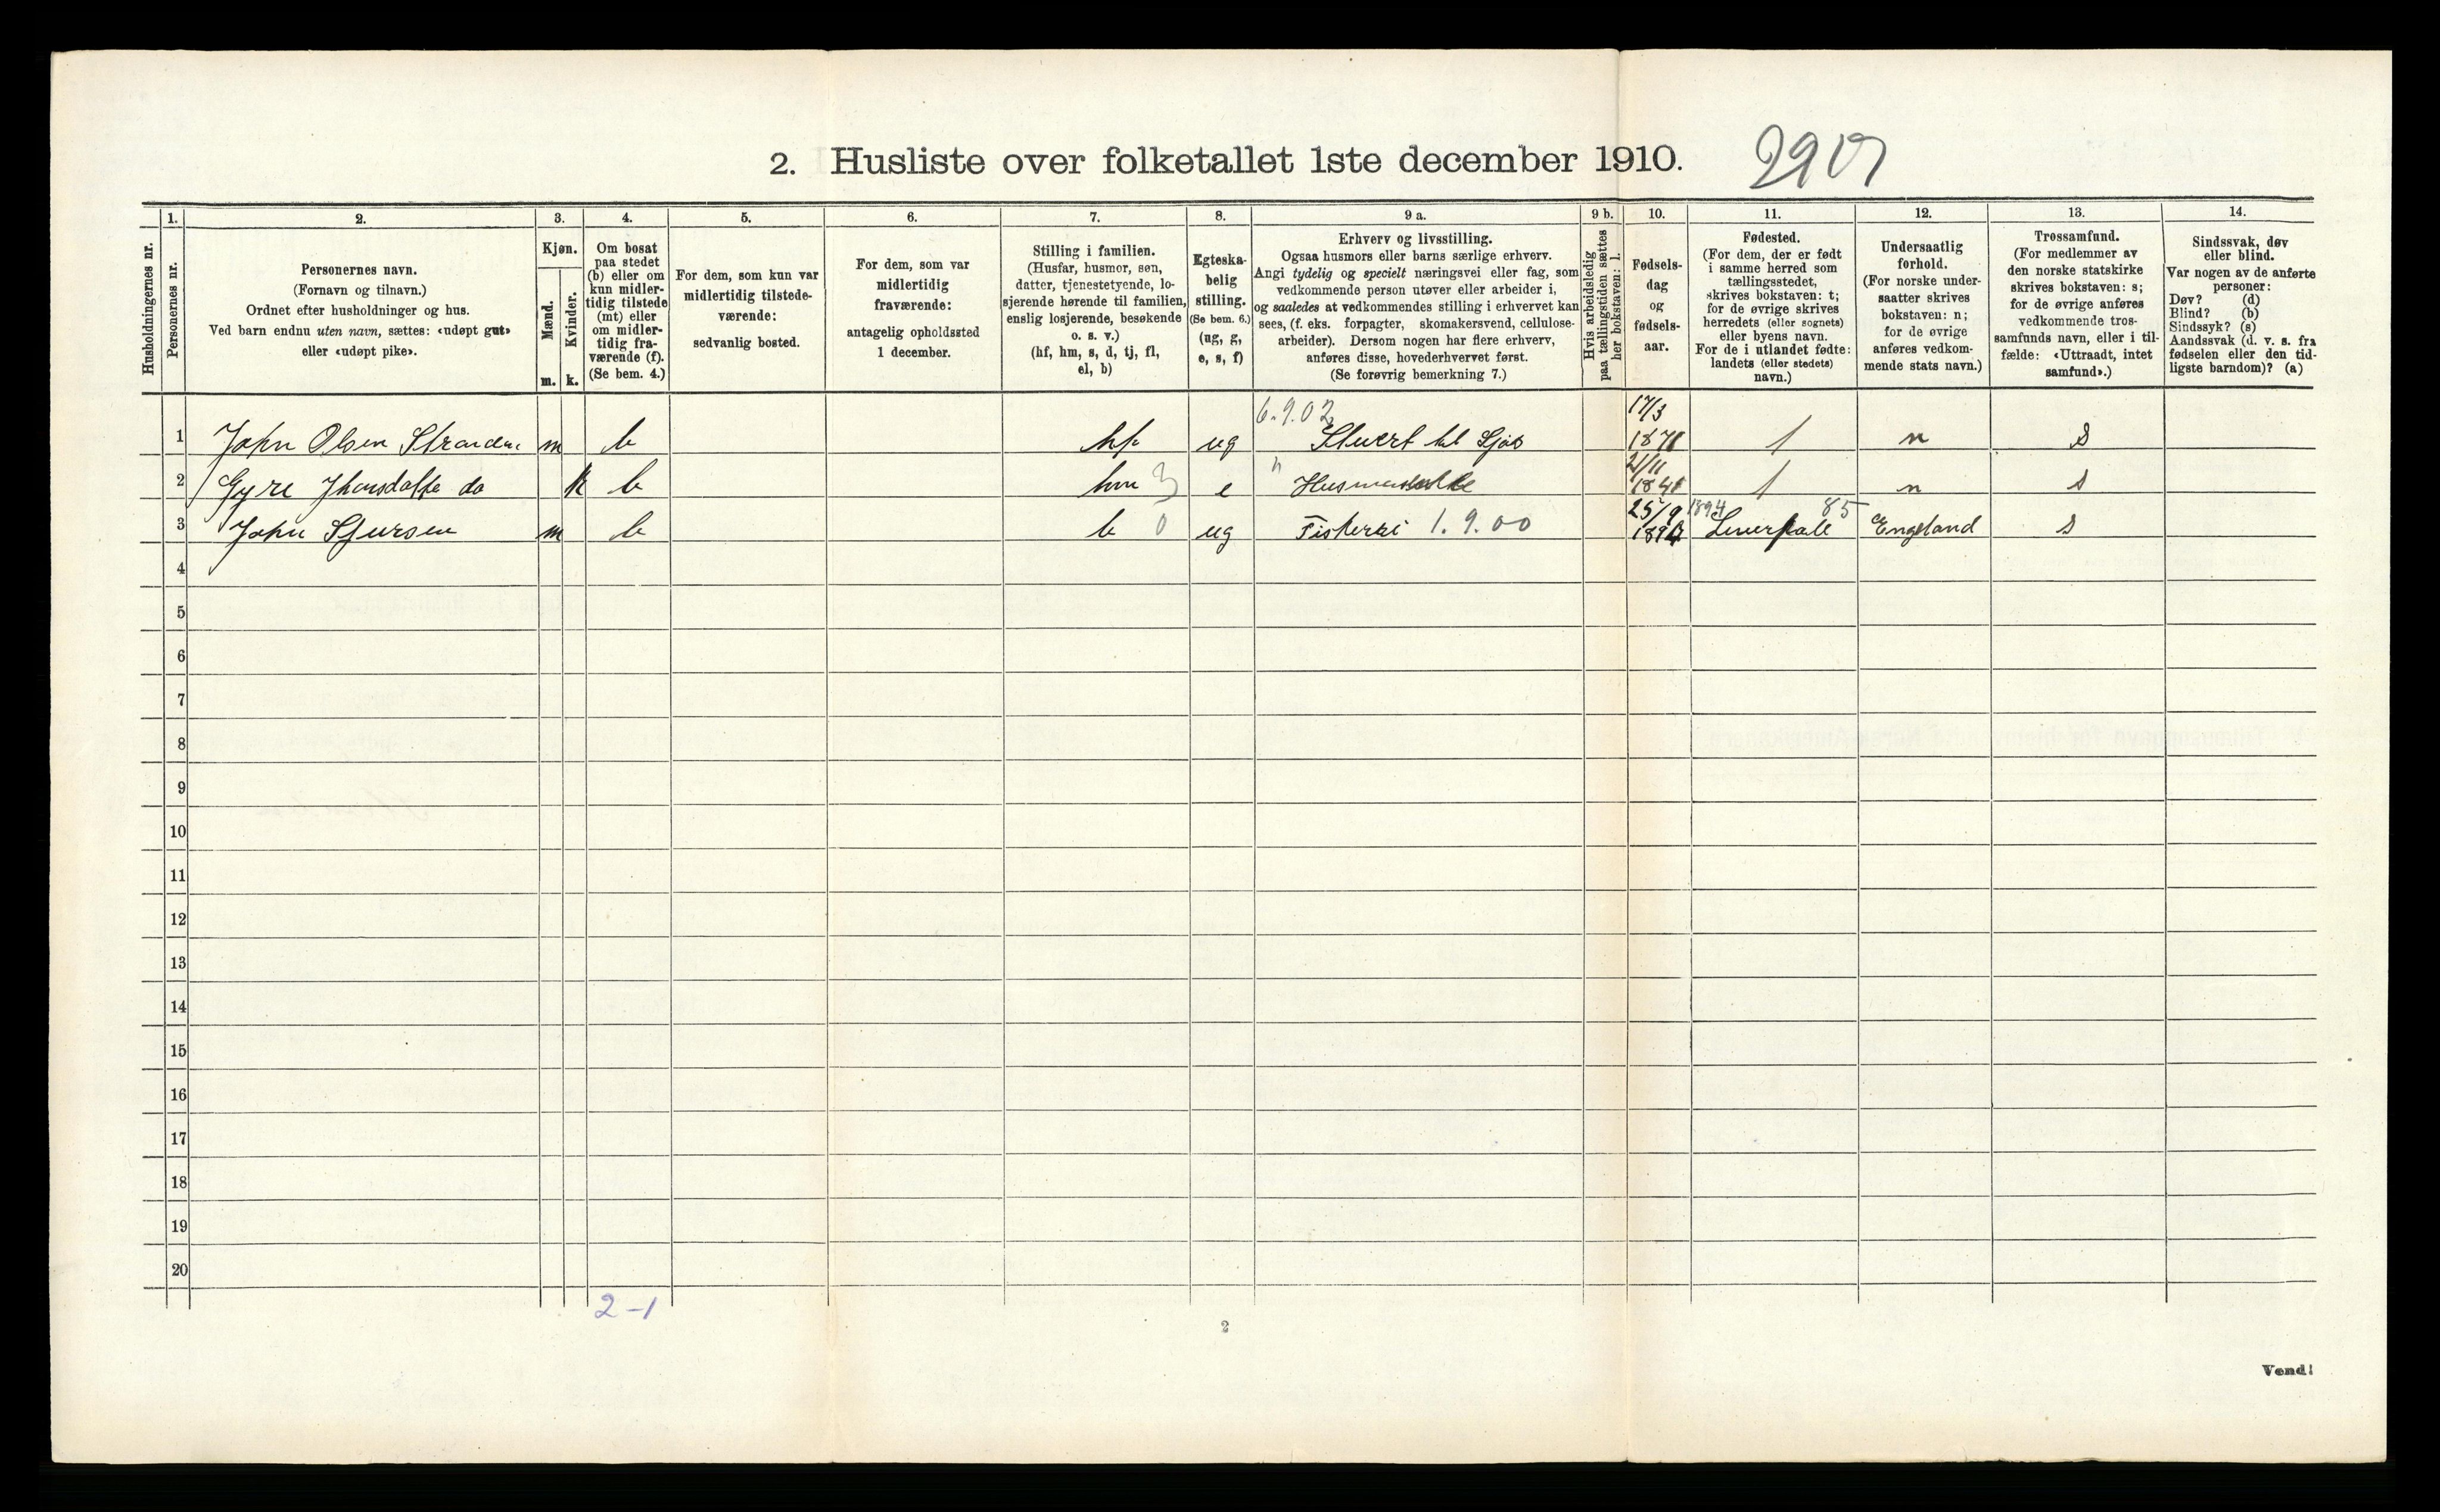 2. Husliste over folketallet 1ste december 1910.
Husholdningernes nr.
1.
Personernes nr.
2.
Personernes navn.
(Fornavn og tilnavn.)
Ordnet efter husholdninger og hus.
Ved barn endnu uten navn, sættes: «udøpt gut»
eller «udøpt pike».
3.
Kjøn.
Mænd.
Kvinder.
m. k.
4.
Om bosat
paa stedet
(b) eller om
kun midler-
tidig tilstede
(mt) eller
om midler-
tidig fra-
værende (f).
(Se bem. 4.)
5.
For dem, som kun var
midlertidig tilstede-
værende:
sedvanlig bosted.
6.
For dem, som var
midlertidig
fraværende:
antagelig opholdssted
1 december.
7.
Stilling i familien.
(Husfar, husmor, søn,
datter, tjenestetyende, lo-
sjerende hørende til familien,
enslig losjerende, besøkende
o. s. v.)
(hf, hm, s, d, tj, fl,
el, b)
8.
Egteska-
belig
stilling.
(Se bem. 6.)
(ug, g,
e, s, f)
9 a.
Erhverv og livsstilling.
Ogsaa husmors eller barns særlige erhverv.
Angi tydelig og specielt næringsvei eller fag, som
vedkommende person utøver eller arbeider i,
og saaledes at vedkommendes stilling i erhvervet kan
sees, (f. eks. forpagter, skomakersvend, cellulose-
arbeider). Dersom nogen har flere erhverv,
anføres disse, hovederhvervet først.
(Se forøvrig bemerkning 7.)
9 b.
Hvis arbeidsledig
paa tællingstiden sættes
her bokstaven: l.
10.
Fødsels-
dag
og
fødsels-
aar.
11.
Fødested.
(For dem, der er født
i samme herred som
tællingsstedet,
skrives bokstaven: t;
for de øvrige skrives
herredets (eller sognets)
eller byens navn.
For de i utlandet fødte:
landets (eller stedets)
navn.)
12.
Undersaatlig
forhold.
(For norske under-
saatter skrives
bokstaven: n;
for de øvrige
anføres vedkom-
mende stats navn.)
13.
Trossamfund.
(For medlemmer av
den norske statskirke
skrives bokstaven: s;
for de øvrige anføres
vedkommende tros-
samfunds navn, eller i til-
fælde: «Uttraadt, intet
samfund».)
14.
Sindssvak, døv
eller blind.
Var nogen av de anførte
personer:
Døv? (d)
Blind? (b)
Sindssyk? (s)
Aandssvak (d. v. s. fra
fødselen eller den tid-
ligste barndom)? (a)
6.9.02 17/3
1 John Olsen m b hf ug til Sjøs n s
21/11
2 Gyre do k b hm 3 e " n s
25/9 1894 85
3 John m b b 0 ug Fiskeri 1.9.00 England s
4
5
6
7
8
9
10
11
12
13
14
15
16
17
18
19
20
2-1
2
Vend!